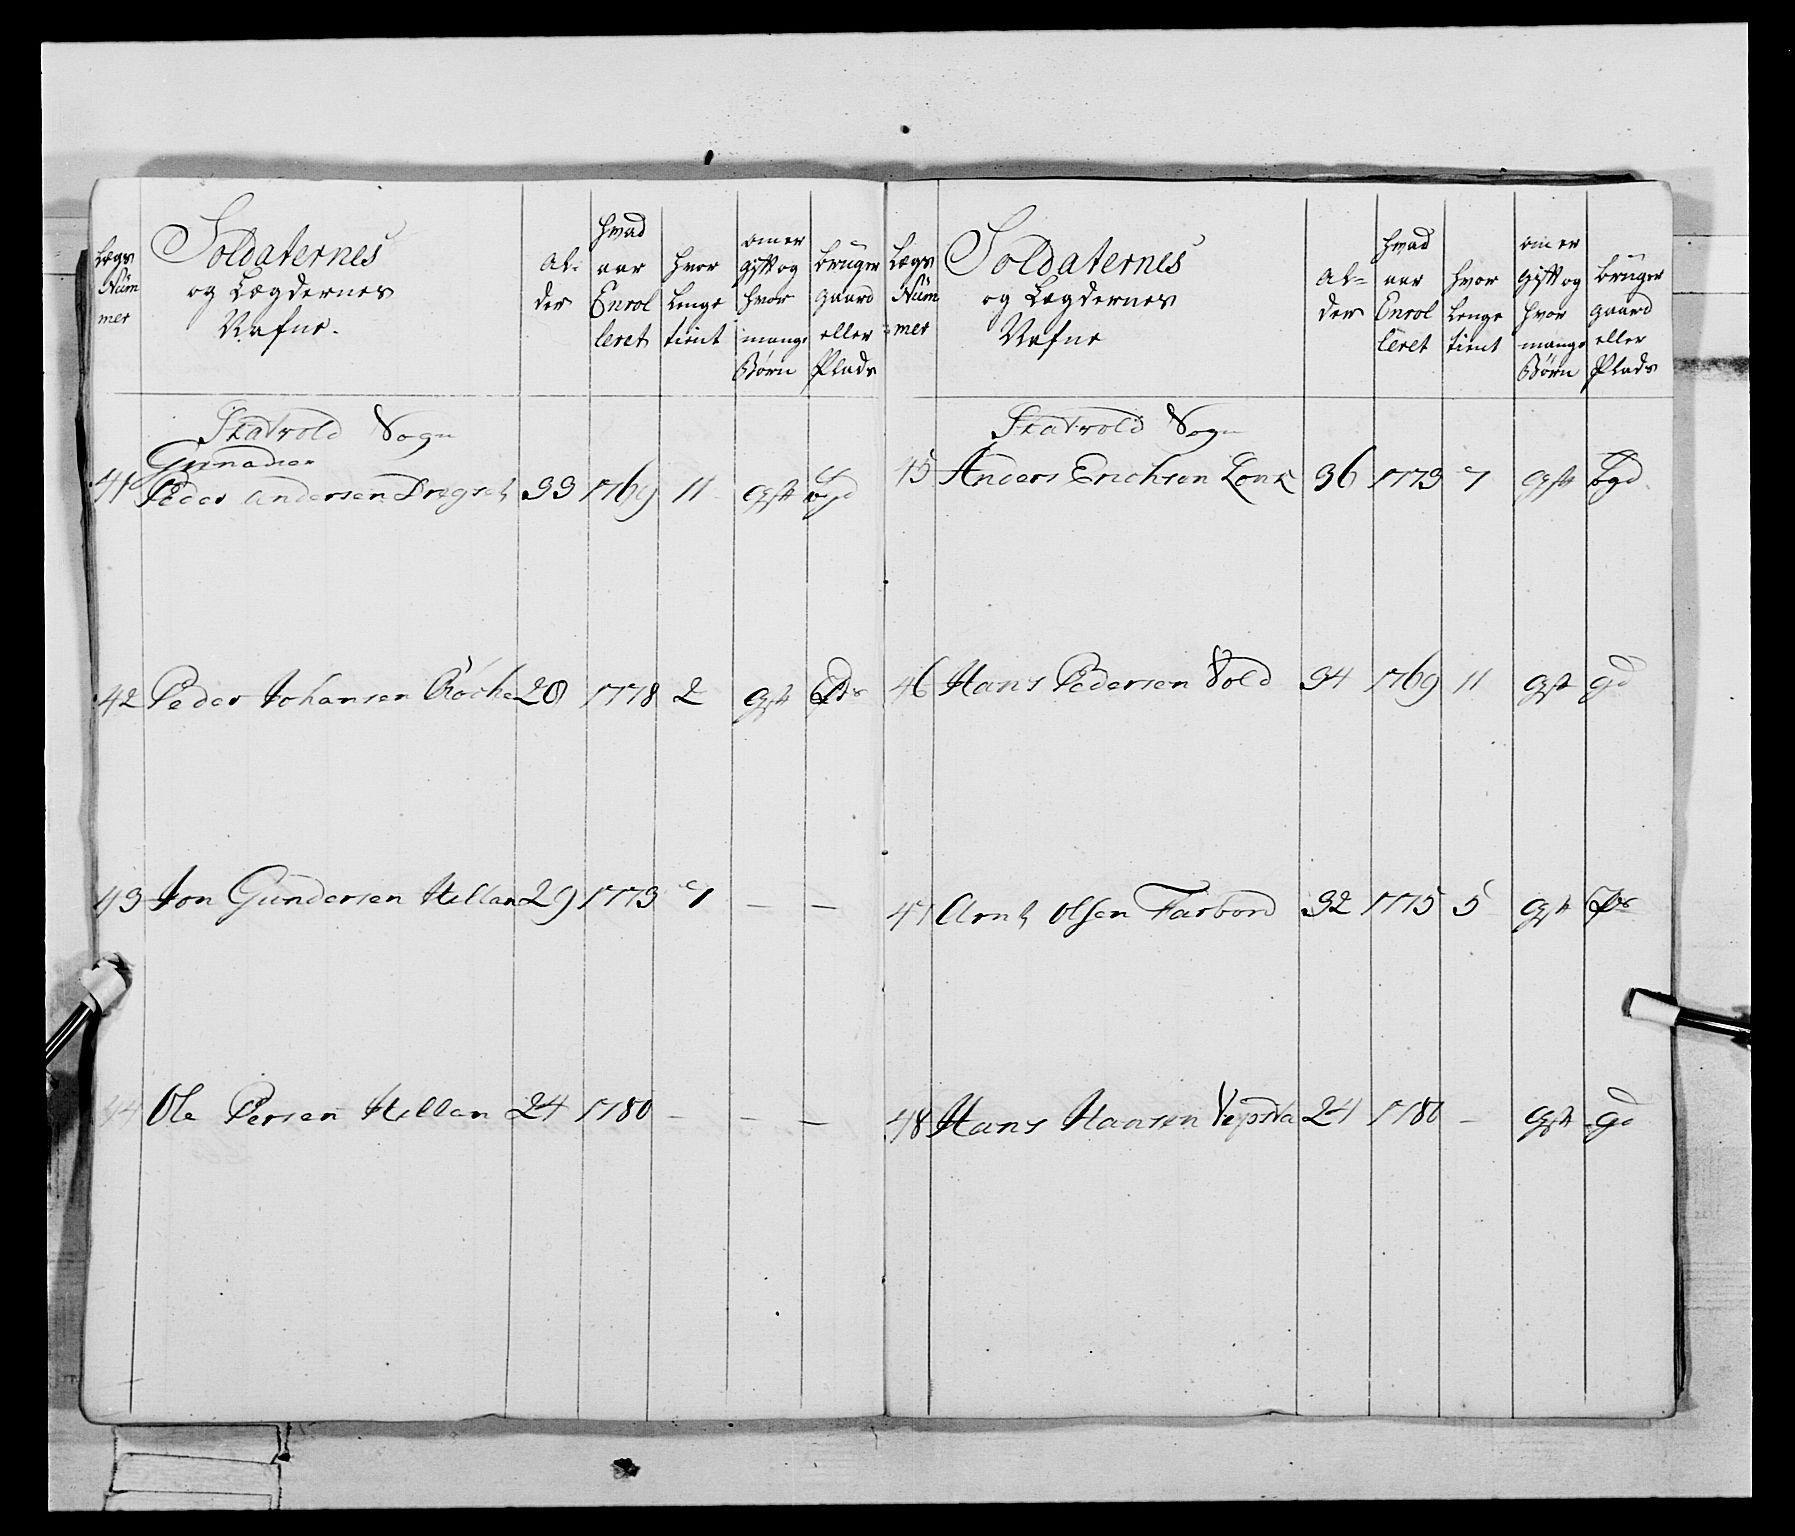 Lægs Num mer | Soldaternes og Lægdernes Nafne. | Al- der | hvad aar Enrol leret | hvor lenge tient | om er gift og hvor mange Børn | bruger gaard eller Plads
Sogn
Grenadeer
41 Peder Andersen 33 1769 11 gift
42 Peder Johansen 20 1778 2 gift
43 Jon Gundersen Hellan 29 1773 7 — —
44 Ole Persen Hellan 24 1780 — — —
Lægs Num mer | Soldaternes og Lægdernes Nafne | Al= der | hvad aar Enrol leret | hvor lenge tient | om er gift og hvor mange Børn | bruger gaard eller Plads
Sogn
45 Anders Erichsen 36 1773 7 gift
46 Hans Pedersen Vold 34 1769 11 gift gd
47 Arnt Olsen Farbord 32 1775 5 gift
48 Hans Hansen 24 1780 — gift gd